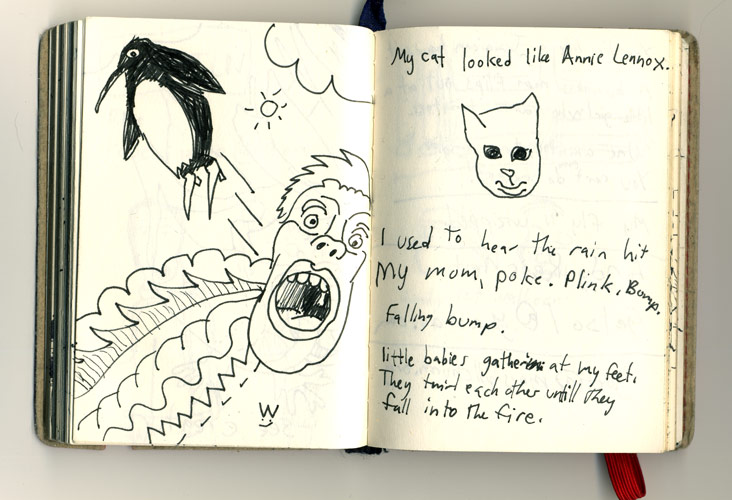 W
My cat looked like Annie Lennox.
I used to hear the rain hit
My mom, poke. Plink. Bump.
Falling bump.
little babies gathering at my feet.
They twirl each other untill they
fall into the fire.